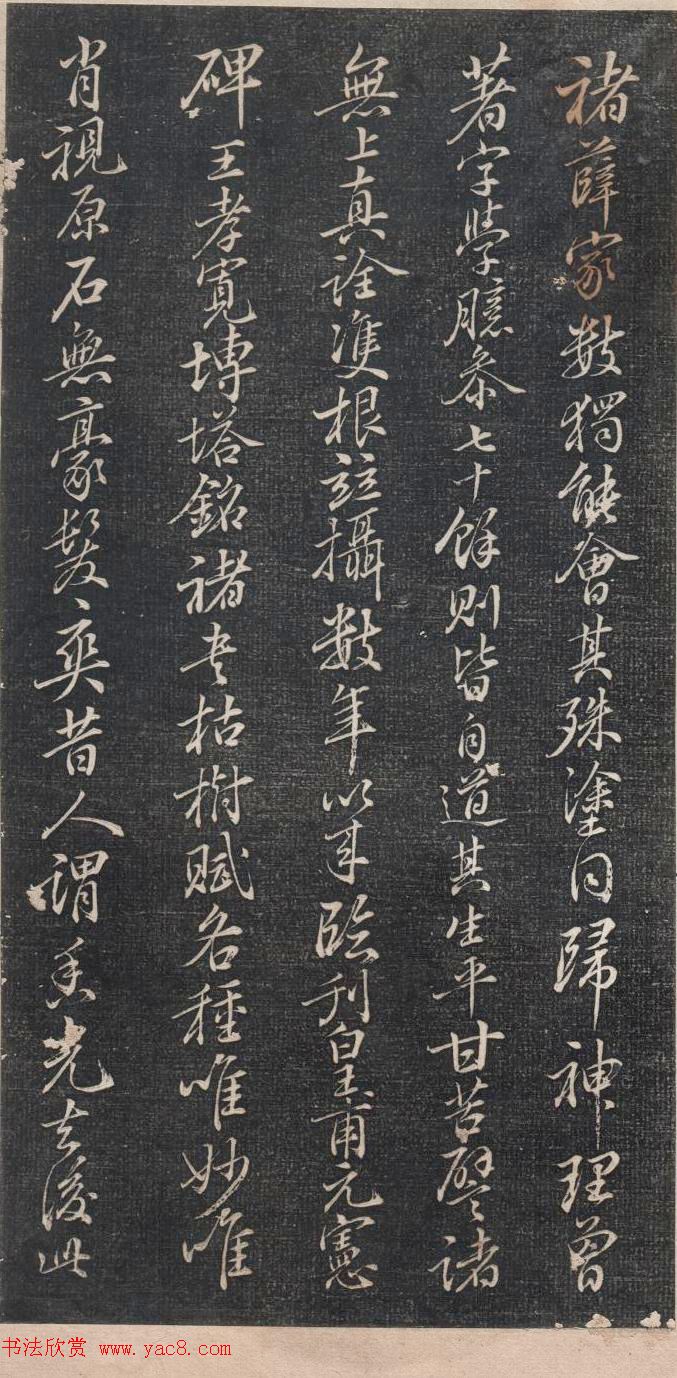 褚薛家數獨能會其殊塗同歸神理曾
著字學臆參七十餘則皆自道其生平甘苦譬諸
無上真詮隻根竝攝數年以來臨刊皇甫元憲
碑王孝寬塼塔銘褚書枯樹賦各種唯妙唯
肖視原石無豪髮爽昔人謂香光去後此
书法欣赏 www.yac8.com